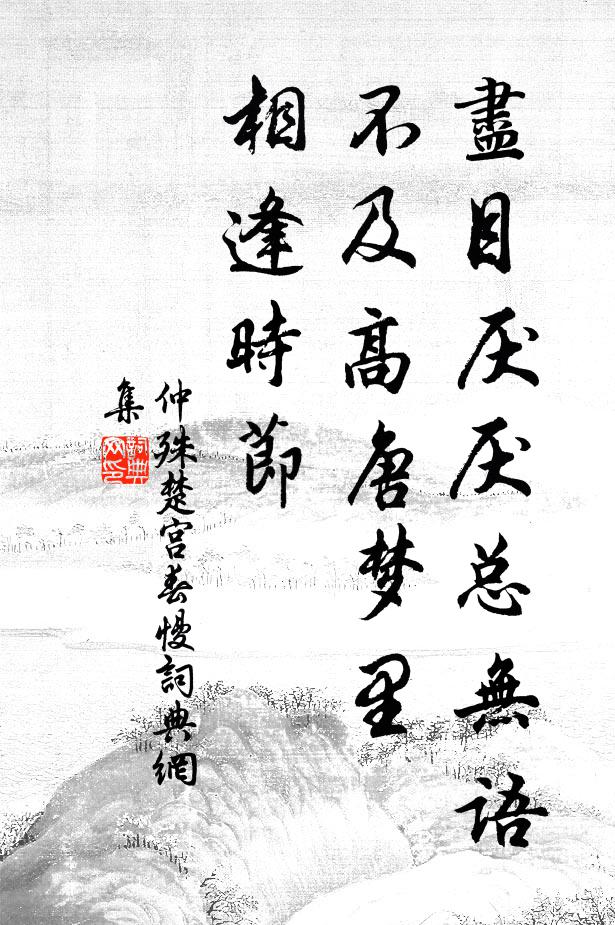 盡目厌厌总無语
不及高唐梦里
相逢時節
仲殊楚宫春慢詞典網
集
詞典
网印